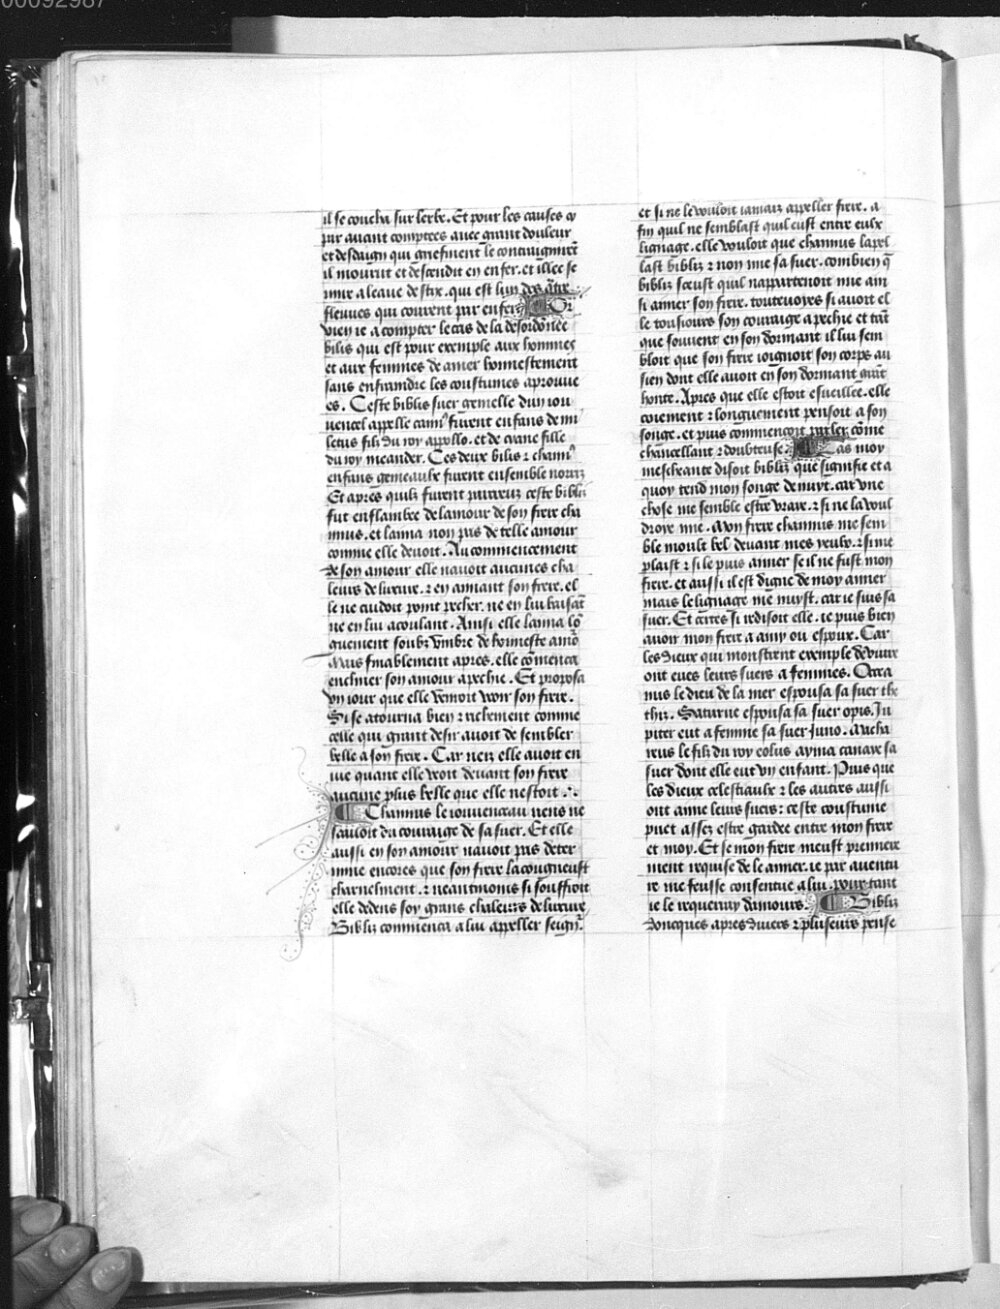 00092987
il se coucha sur lerbe. Et pour les causes cy
par auant comptees auec grant douleur
et desdaign qui griefment le contraignirẽt
il mourut et descendit en enfer. et illec se
mire a leaue de stix. qui est lun des q̃tre
fleuues qui courent par enfer ¶ Or
vien ie a compter le cas de la desordõnee
bilis qui est pour exemple aux hommes
et aux femmes de amer honnestement
sans enfraindre les coustumes aprouue
es. Ceste biblis suer gemelle dun iou
uencel appelle caim9 furent enfans de mi
letus filz du roy appollo. et de cyane fille
du roy meander. Ces deux bilis ⁊ chaim9
enfans gemeaulx furent ensemble norriz
Et apres quilz furent parcreuz ceste biblis
fut enflambee de lamour de son frere cha
nnus. et lama non pas de telle amour
comme elle deuoit. Au commencement
de son amour elle nauoit aucunes cha
leurs de luxure. ⁊ en amant son frere. el
le ne cuidoit point pecher. ne en lui baisãt
ne en lui acoulant. Ainsi elle lama lõ
guement soubz vmbre de honneste amõ
Mais finablement apres. elle cõmenca
encliner son amour a pechie. Et proposa
vn iour que elle venoit veoir son frere.
Si se atourna bien ⁊ richement comme
celle qui grant desir auoit de sembler
belle a son frere. Car neiz elle auoit en
uie quant elle veoit deuant son frere
aucune plus belle que elle nestoit
¶ Channus le iouuenceau riens ne
sauoit du courage de sa suer. Et elle
aussi en son amour nauoit pas deter
mine encores que son frere la cougneust
charnelment. ⁊ neantmoins si souffroit
elle dedens soy grans chaleurs de luxure
Bibliz commenca a lui appeller seigñ.
et si ne le vouloit iamaiz appeller frere. a
fin quil ne semblast quil eust entre eulx
lignage. elle vouloit que channus lapel
last bibliz ⁊ non mie sa suer. combien q̃
bibliz sceust quil nappartenoit mie ain
si amer son frere. touteuoyes si auoit el
le tousiours son courage a pechie et tãt
que souuent en son dormant il lui sem
bloit que son frere ioignoit son corps au
sien dont elle auoit en son dormant grãt
honte. Apres que elle estoit esueillee. elle
coiement ⁊ longuement pensoit a son
songe. et puis commencoit parler cõme
chancellant ⁊ doubteuse. ¶ Las moy
mescheante disoit bibliz que signifie et a
quoy tend mon songe de nuyt. car vne
chose me semble estre vraie. ⁊ si ne la voul
droye mie. Mon frere channus me sem
ble moult bel deuant mes yeulx. ⁊ si me
plaist ⁊ si le puis amer se il ne fust mon
frere. et aussi il est digne de moy amer
mais le lignage me nuyst. car ie suis sa
suer. Et certes si redisoit elle. ie puis bien
auoir mon frere a amy ou espoux. Car
les dieux qui monstrent exemple de viure
ont eues leurs suers a femmes. Occea
nus le dieu de la mer espousa sa suer the
thiz. Saturne espousa sa suer opis. Ju
piter eut a femme sa suer Juno. Macha
reus le filz du roy eolus ayma canaye sa
suer dont elle eut vn enfant. Puis que
les dieux celestiaulx ⁊ les autres aussi
ont ame leurs suers: ceste coustume
puet assez estre gardee entre mon frere
et moy. Et se mon frere meust premiere
ment requise de le amer. ie par auentu
re me feusse consentue a lui. pour tant
ie le requerray damours. ¶ Bibliz
doncques apres diuers ⁊ pluseurs pense